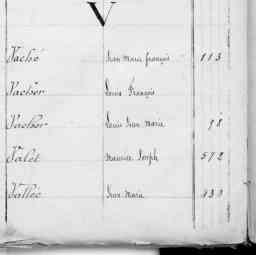 V
Vaché Jean Marie françois 113
Vacher Louis François
Vacher Louis Jean Marie 98
Valet Maurice Joseph 572
Vallée Jean Marie